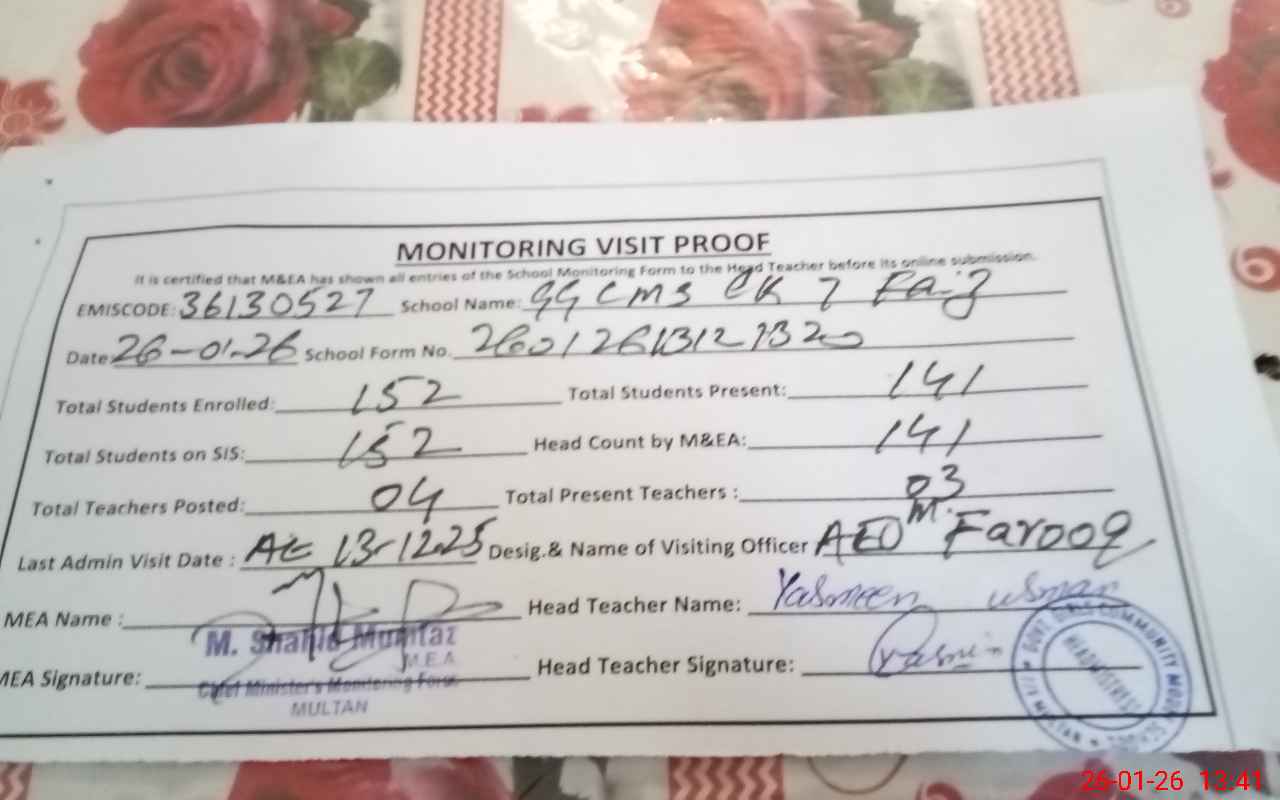 MONITORING VISIT PROOF
It is certified that M&EA has shown all entries of the School Monitoring Form to the Head Teacher before its online submission.
EMISCODE: 36130527 School Name: GGCMS CK 7 Faiz
Date 26-01-26 School Form No. 
Total Students Enrolled: 152 Total Students Present: 141
Total Students on SIS: 152 Head Count by M&EA: 141
Total Teachers Posted: 04 Total Present Teachers : 03
Last Admin Visit Date : 13-12-25 Desig.& Name of Visiting Officer AEO M. Farooq
MEA Name : Head Teacher Name: Yasmeen usman
M. Shahid Mumtaz
M.E.A
MEA Signature: Head Teacher Signature: Yasmin
Chief Minister's Monitoring Force
MULTAN
GOVT. GIRLS COMMUNITY MODEL SCHOOL
HEADMISTRESS
MULTAN
26-01-26 13:41